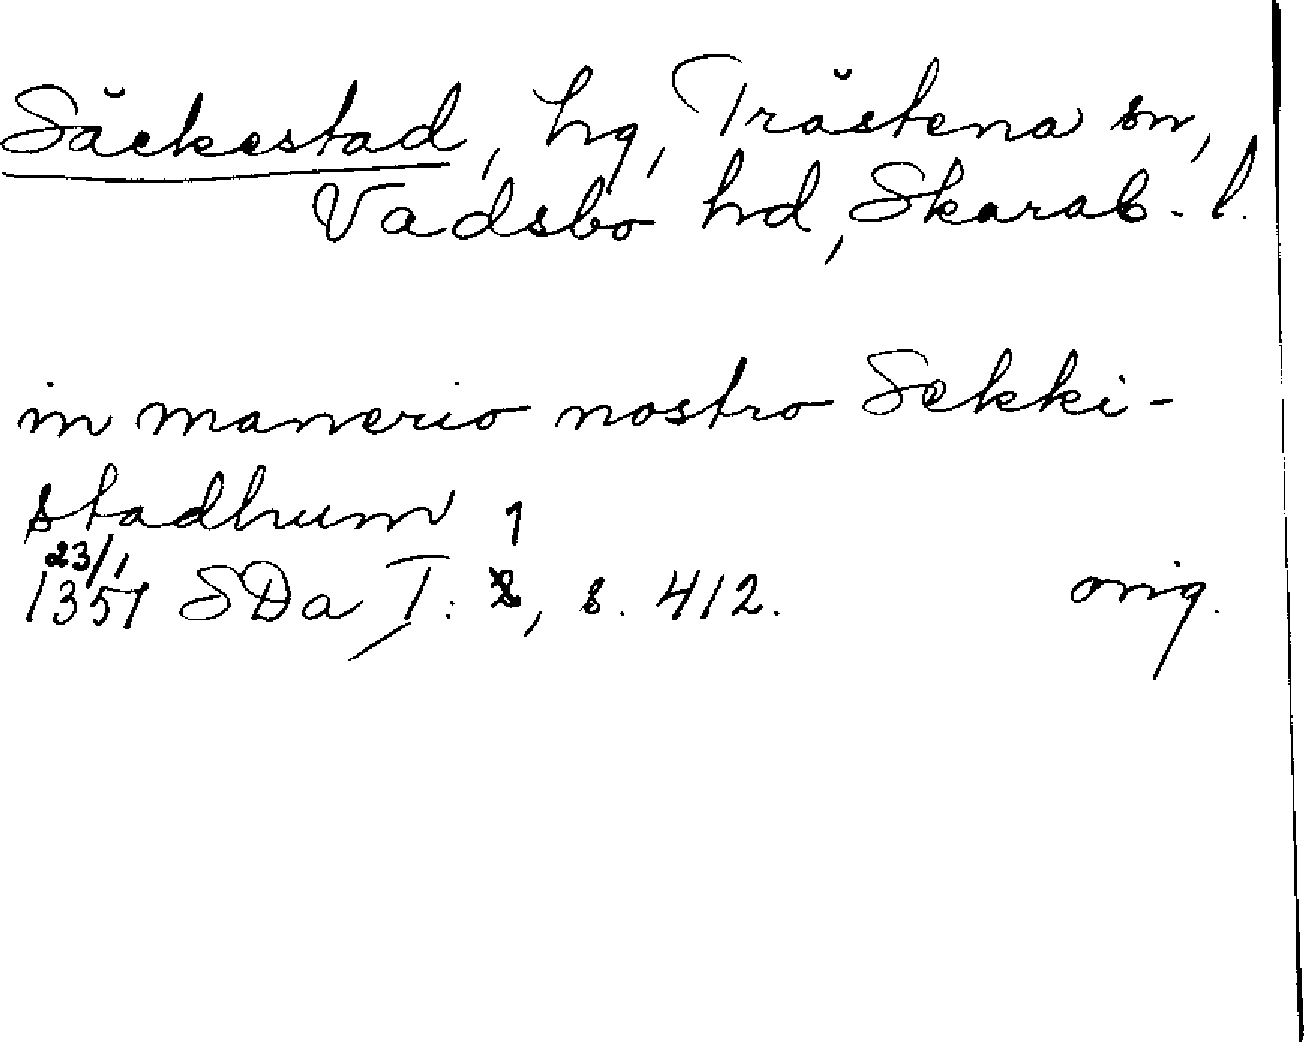 Säckestad, hg, Trästena sn,
Vadsbo hd, Skarab. l.
in manerio nostro Sekki-
stadhum
23/1 1
1351 SDa I: 8, s. 412. orig.